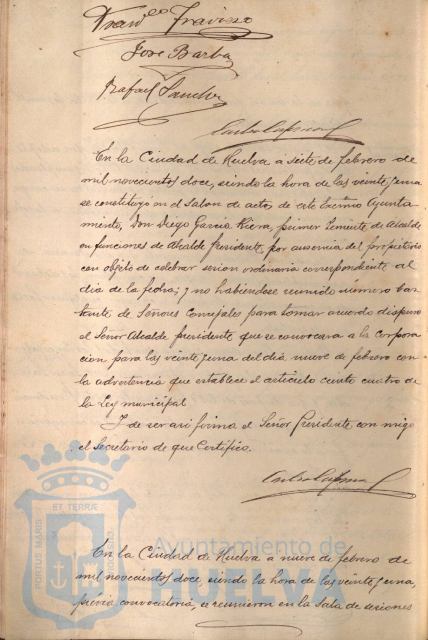 José Barba
Rafael Sanchez
En la Ciudad de Huelva á siete de febrero de
mil novecientos doce, siendo la hora de las veinte y una
se constituyó en el Salon de actos de este Excmo Ayunta-
miento, Don Diego Garcia Riera, primer Teniente de Alcalde
en funciones de Alcalde Presidente, por ausencia del propietario
con objeto de celebrar sesion ordinaria correspondiente al
dia de la fecha; y no habiendose reunido número bas-
tante de Señores Concejales para tomar acuerdo dispuso
el Señor Alcalde presidente que se convocara a la corpora
cion para las veinte y una del dia nueve de febrero con
la advertencia que establece el articulo ciento cuatro de
la Ley municipal.
Y de ser asi firma el Señor Presidente con migo
el Secretario de que Certifico.
ET TERRÆ
PORTUS MARIS
CUSTODIA
Ayuntamiento de
HUELVA
En la Ciudad de Huelva a nueve de febrero de
mil novecientos doce, siendo la hora de las veinte y una,
previa convocatoria, se reunieron en la Sala de sesiones